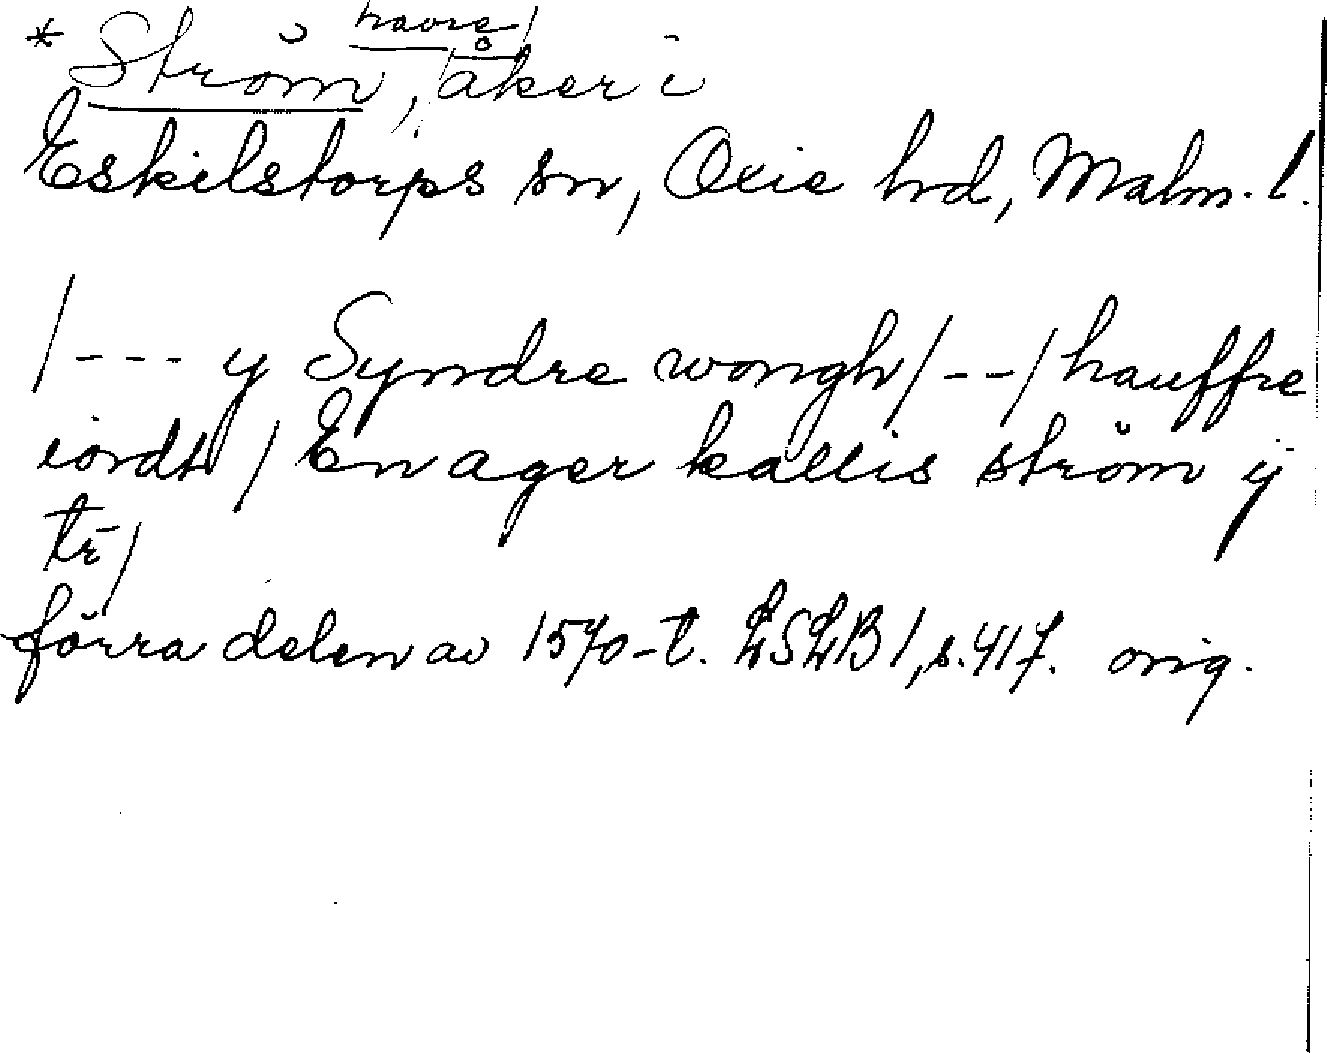 havre/
* Strö̆m, /åker i
Eskilstorps sn, Oxie hd, Malm. l.
/--- y Syndre wongh/--/hauffre
iordt / En ager kallis ström ÿ
tr̄/
förra delen av 1570-t. LSLB 1, s. 417. orig.